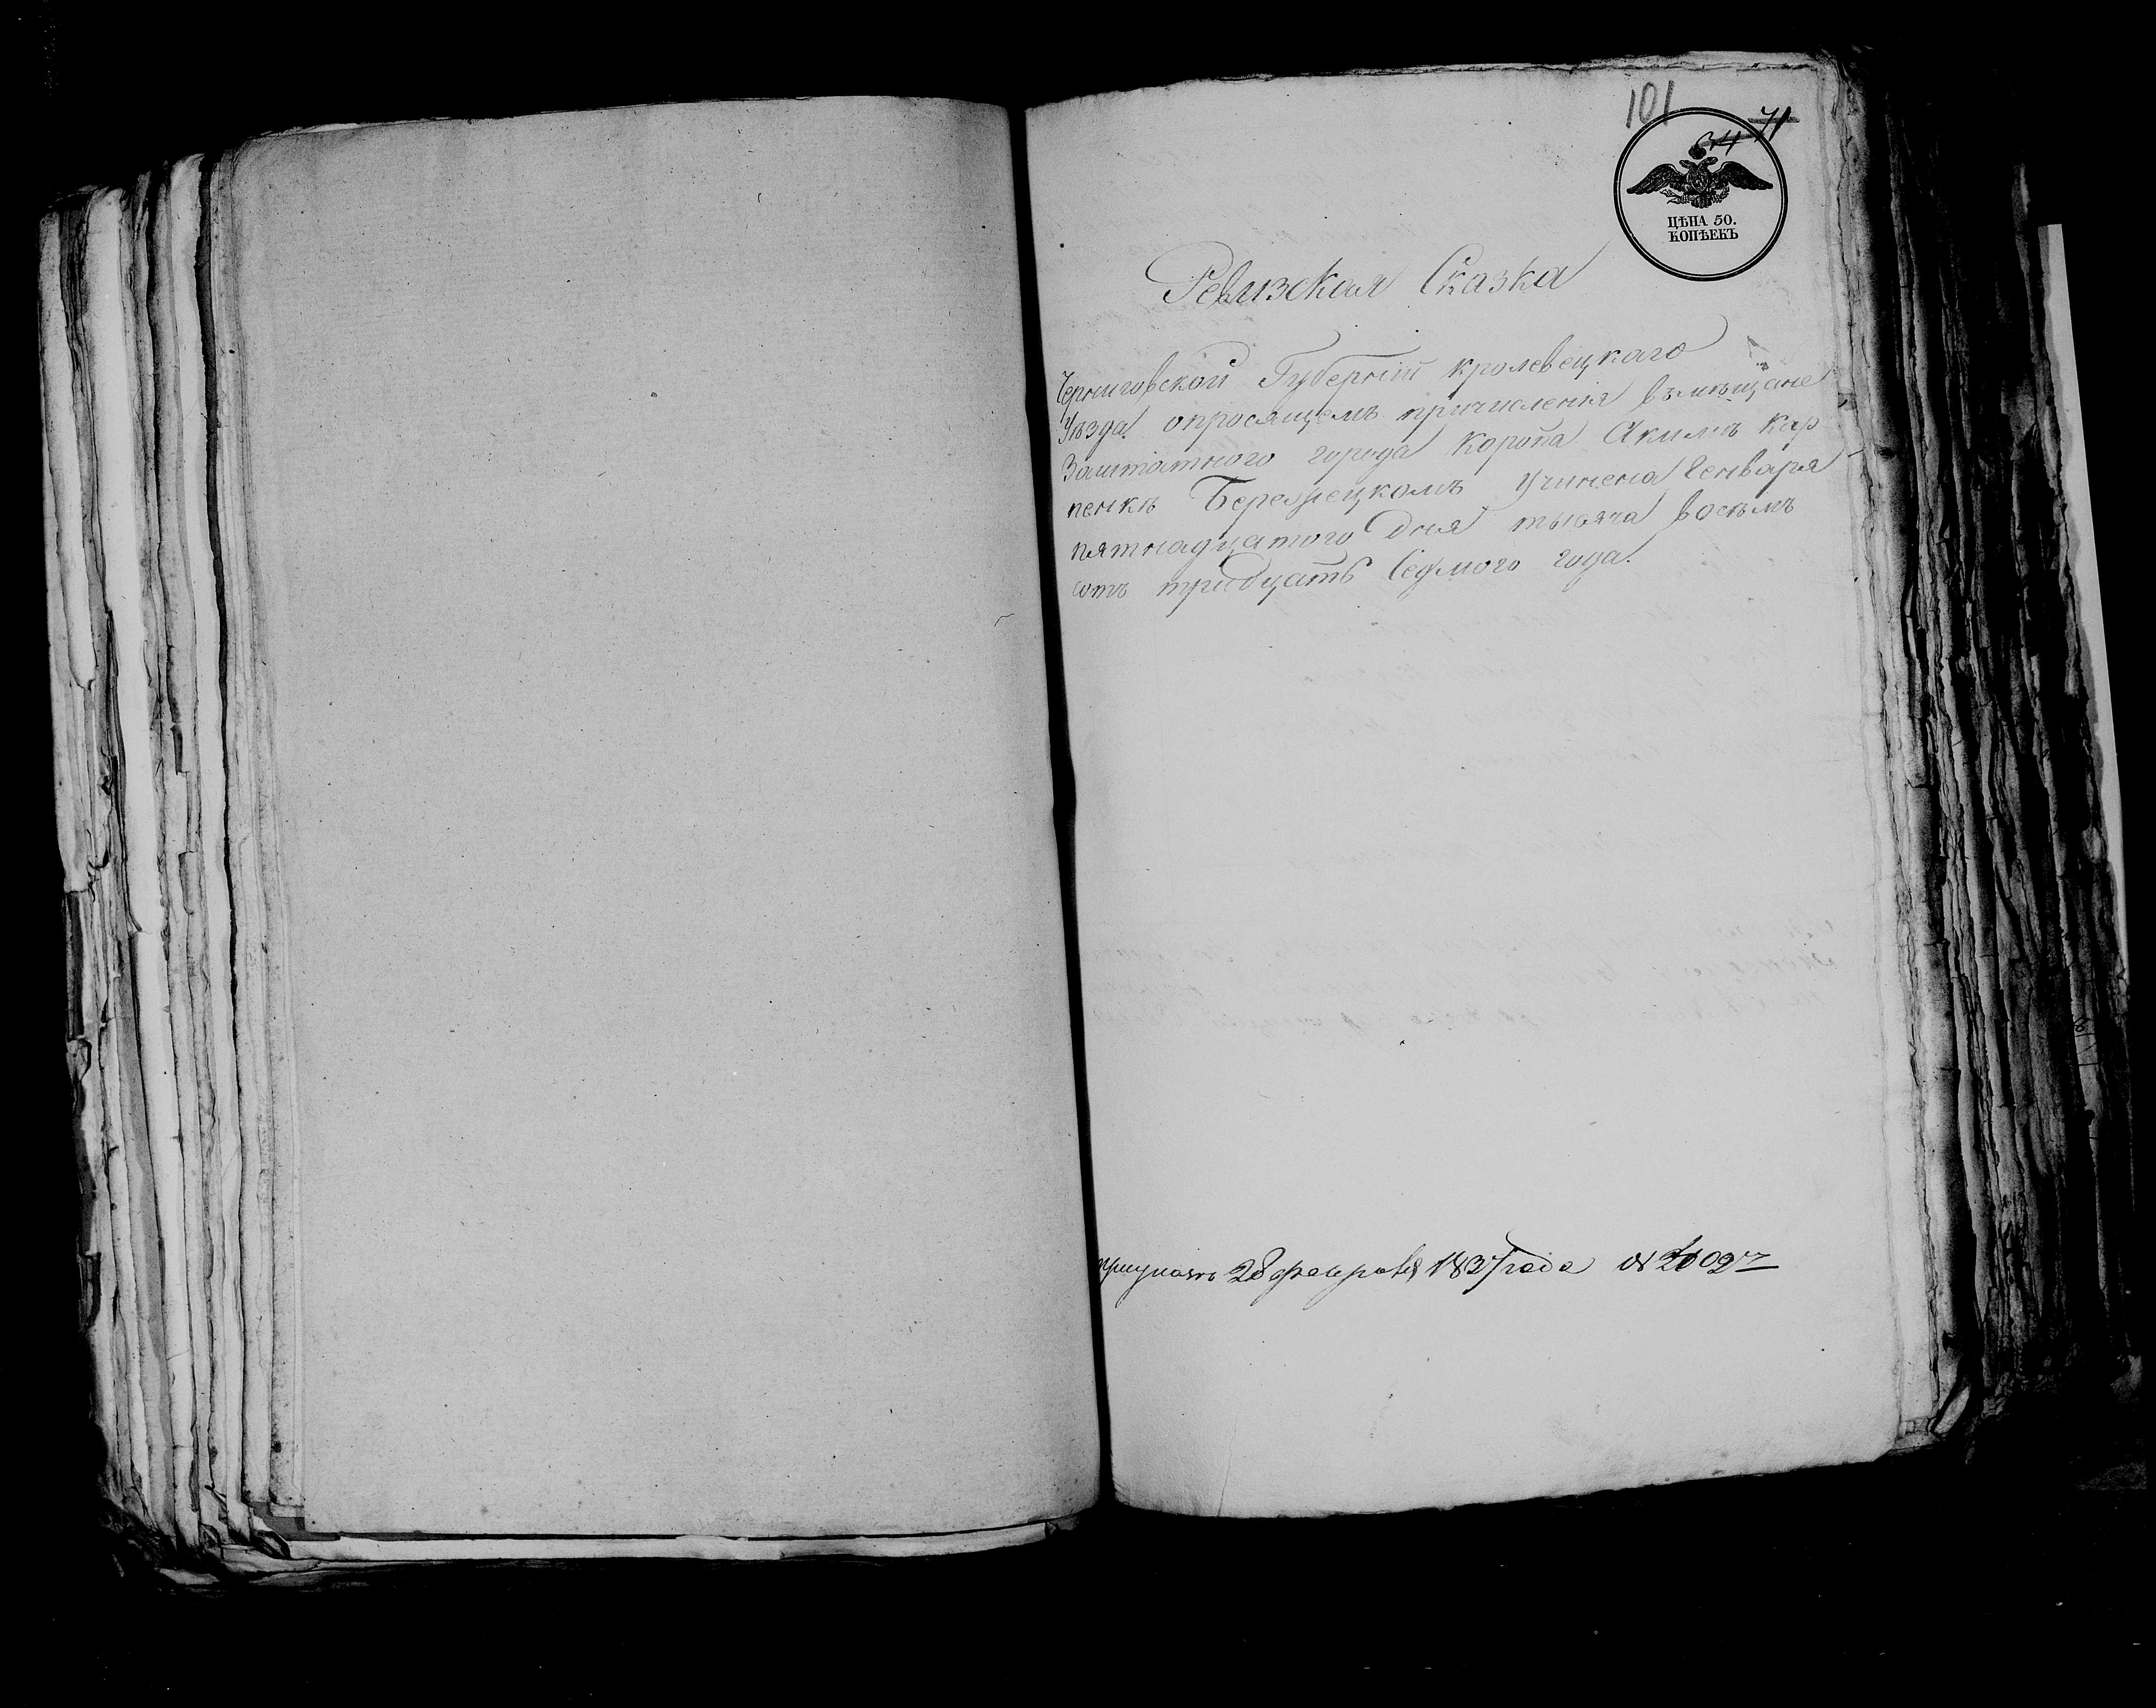 101
34 71
ЦѢНА 50.
КОПѢЕКЪ
Ревизская Сказка
Черниговской Губерніи кролевецкаго
Уѣзда опросящемъ причисленія вьмѣщане
Заштатного города Коропа Акимъ Кар
пенкѣ Бережецкомъ Учинена Генваря
пятнадцатого Дня тысяча восѣмъ
сотъ тридцать Седмого года.
28 февраля 1837 года № 2002